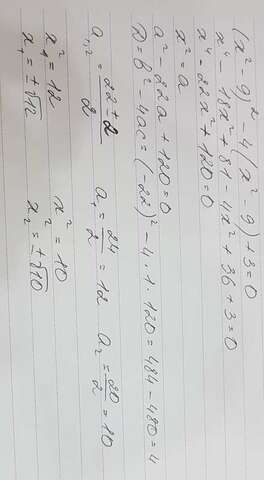 (x²-9)²-4(x²-9)+3=0
x⁴-18x²+81-4x²+36+3=0
x⁴-22x²+120=0
x²=a
a²-22a+120=0
D=b²-4ac=(-22)²-4·1·120=484-480=4
a₁,₂=(22±2)/2 a₁=24/2=12 a₂=20/2=10
x₁²=12 x²=10
x₁=±√12 x₂=±√10